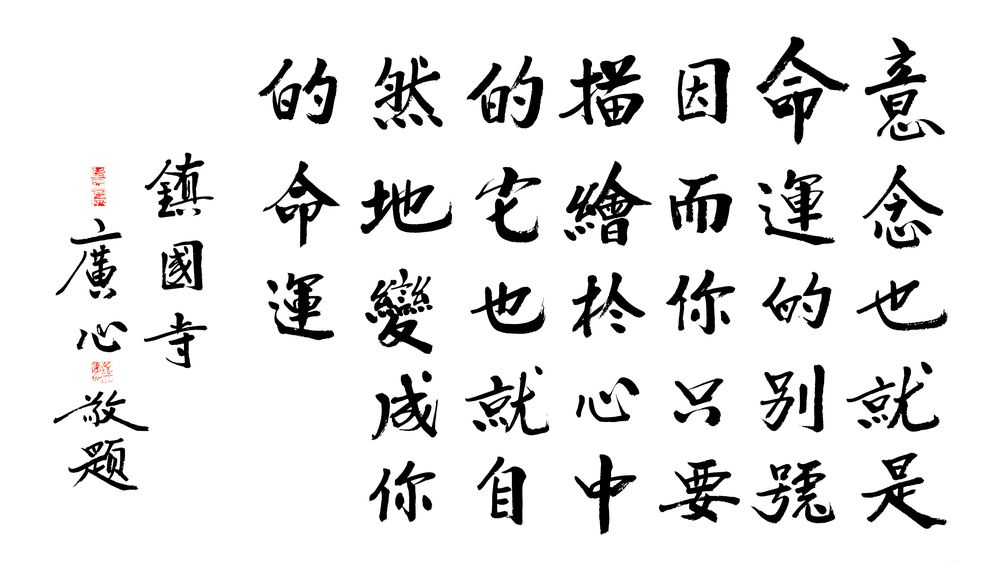 意念也就是
命運的别號
因而你只要
描繪於心中
的它也就自
然地變成你
的命運
鎮國寺
廣心敬題